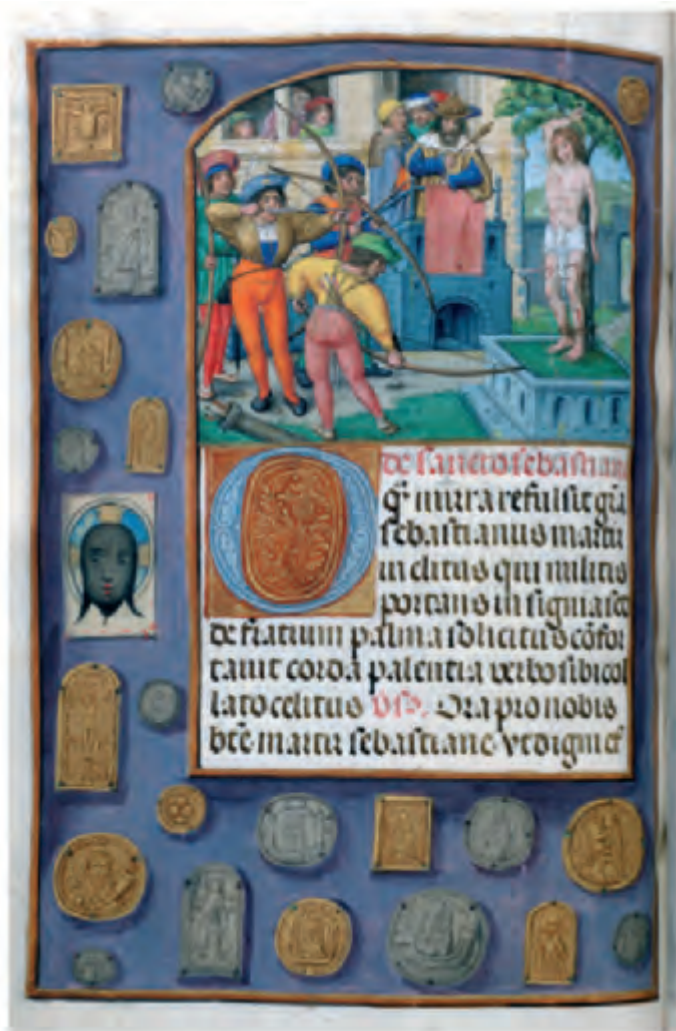 De sancto sebastian
O q̄ mira refulsit grā
sebastianus martir
inclitus qui militis
portans insignia sed
de fratrum palma solicitus cōfor
tauit corda palentia verbo sibi col
lato celitus Vs̄. Ora pro nobis
bēe martir sebastiane. vt digni ef